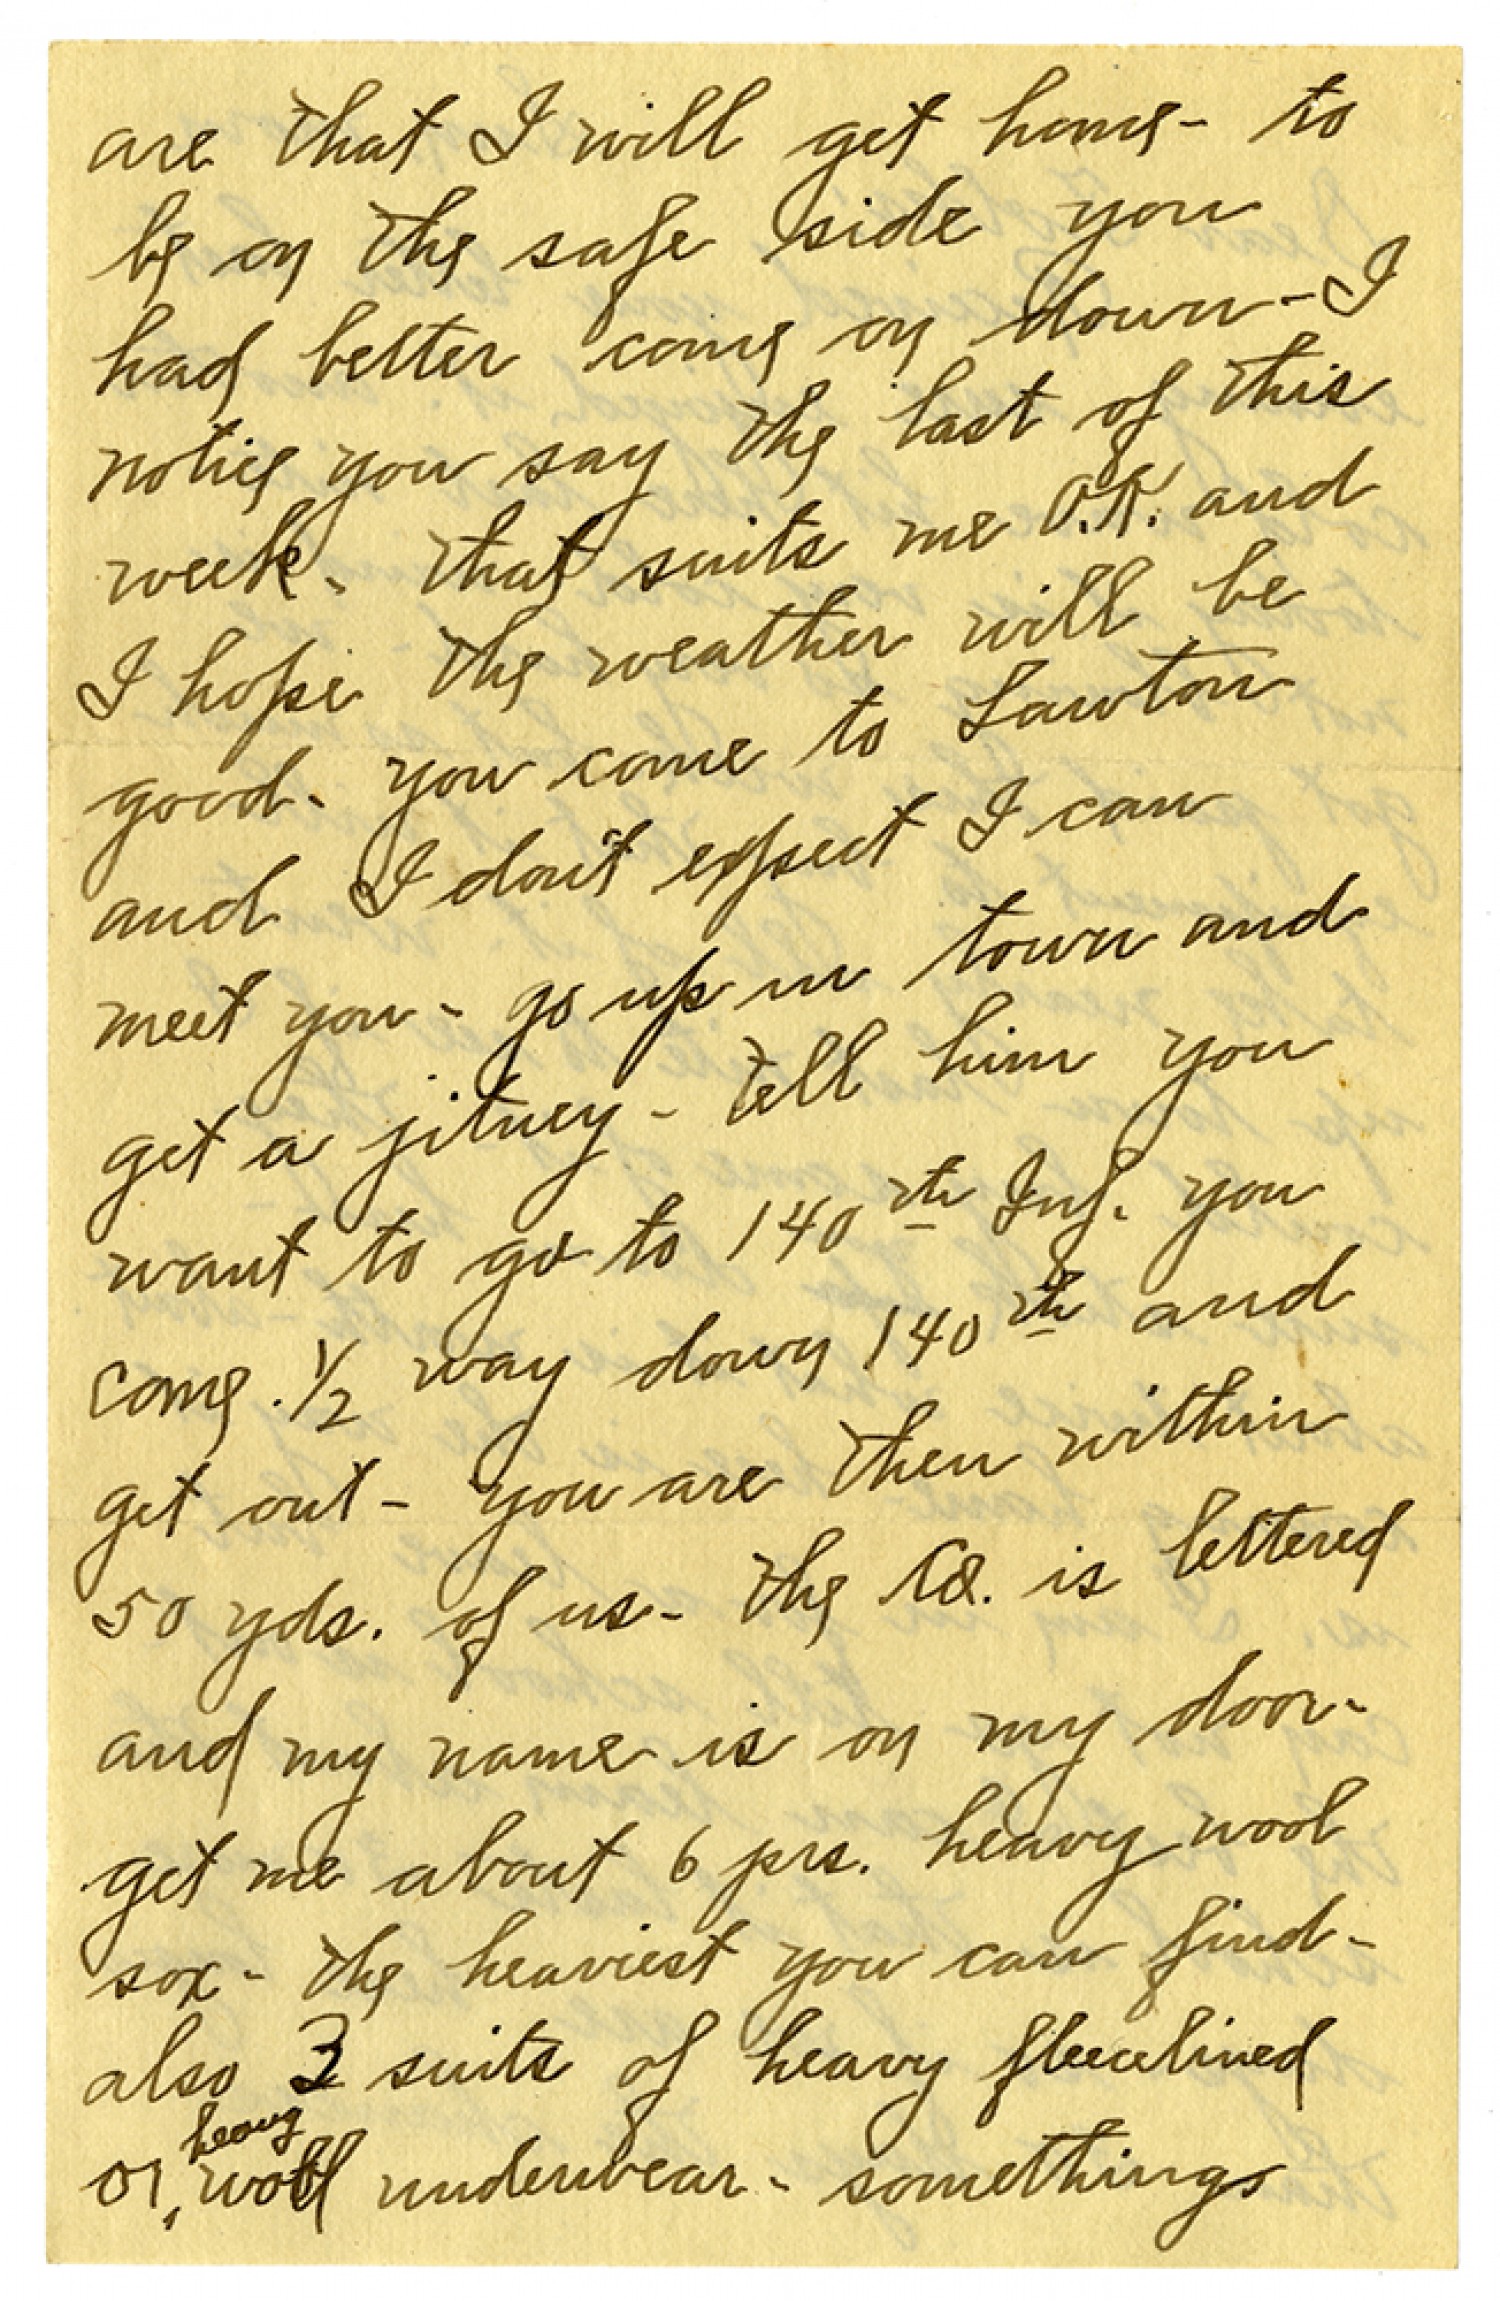 are that I will get home - to
be on the safe side you
had better come on down - I
notice you say the last of this
week. that suits me O.K. and
I hope the weather will be
good. you come to Lawton
and I don't expect I can
meet you - go up in town and
get a jitney - tell him you
want to go to 140th Inf. you
come 1/2 way down 140th and
get out - you are then within
50 yds. of us - the Co. is lettered
and my name is on my door.
get me about 6 prs. heavy wool
sox - the heaviest you can find -
also 3 suits of heavy fleecelined
heavy
or, wool underwear - somethings